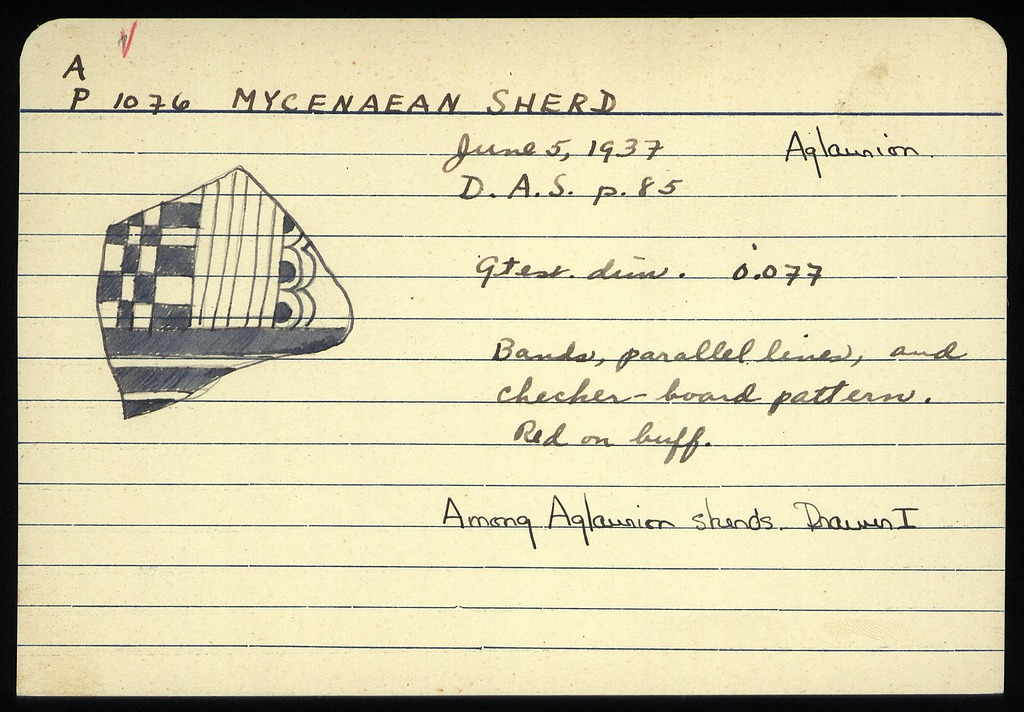 A
P 1076 MYCENAEAN SHERD
June 5, 1937 Aglaurion.
D. A. S. p. 85
Gtest. dim. 0.077
Bands, parallel lines, and
checker-board pattern.
Red on buff.
Among Aglaurion sherds. Drawer I